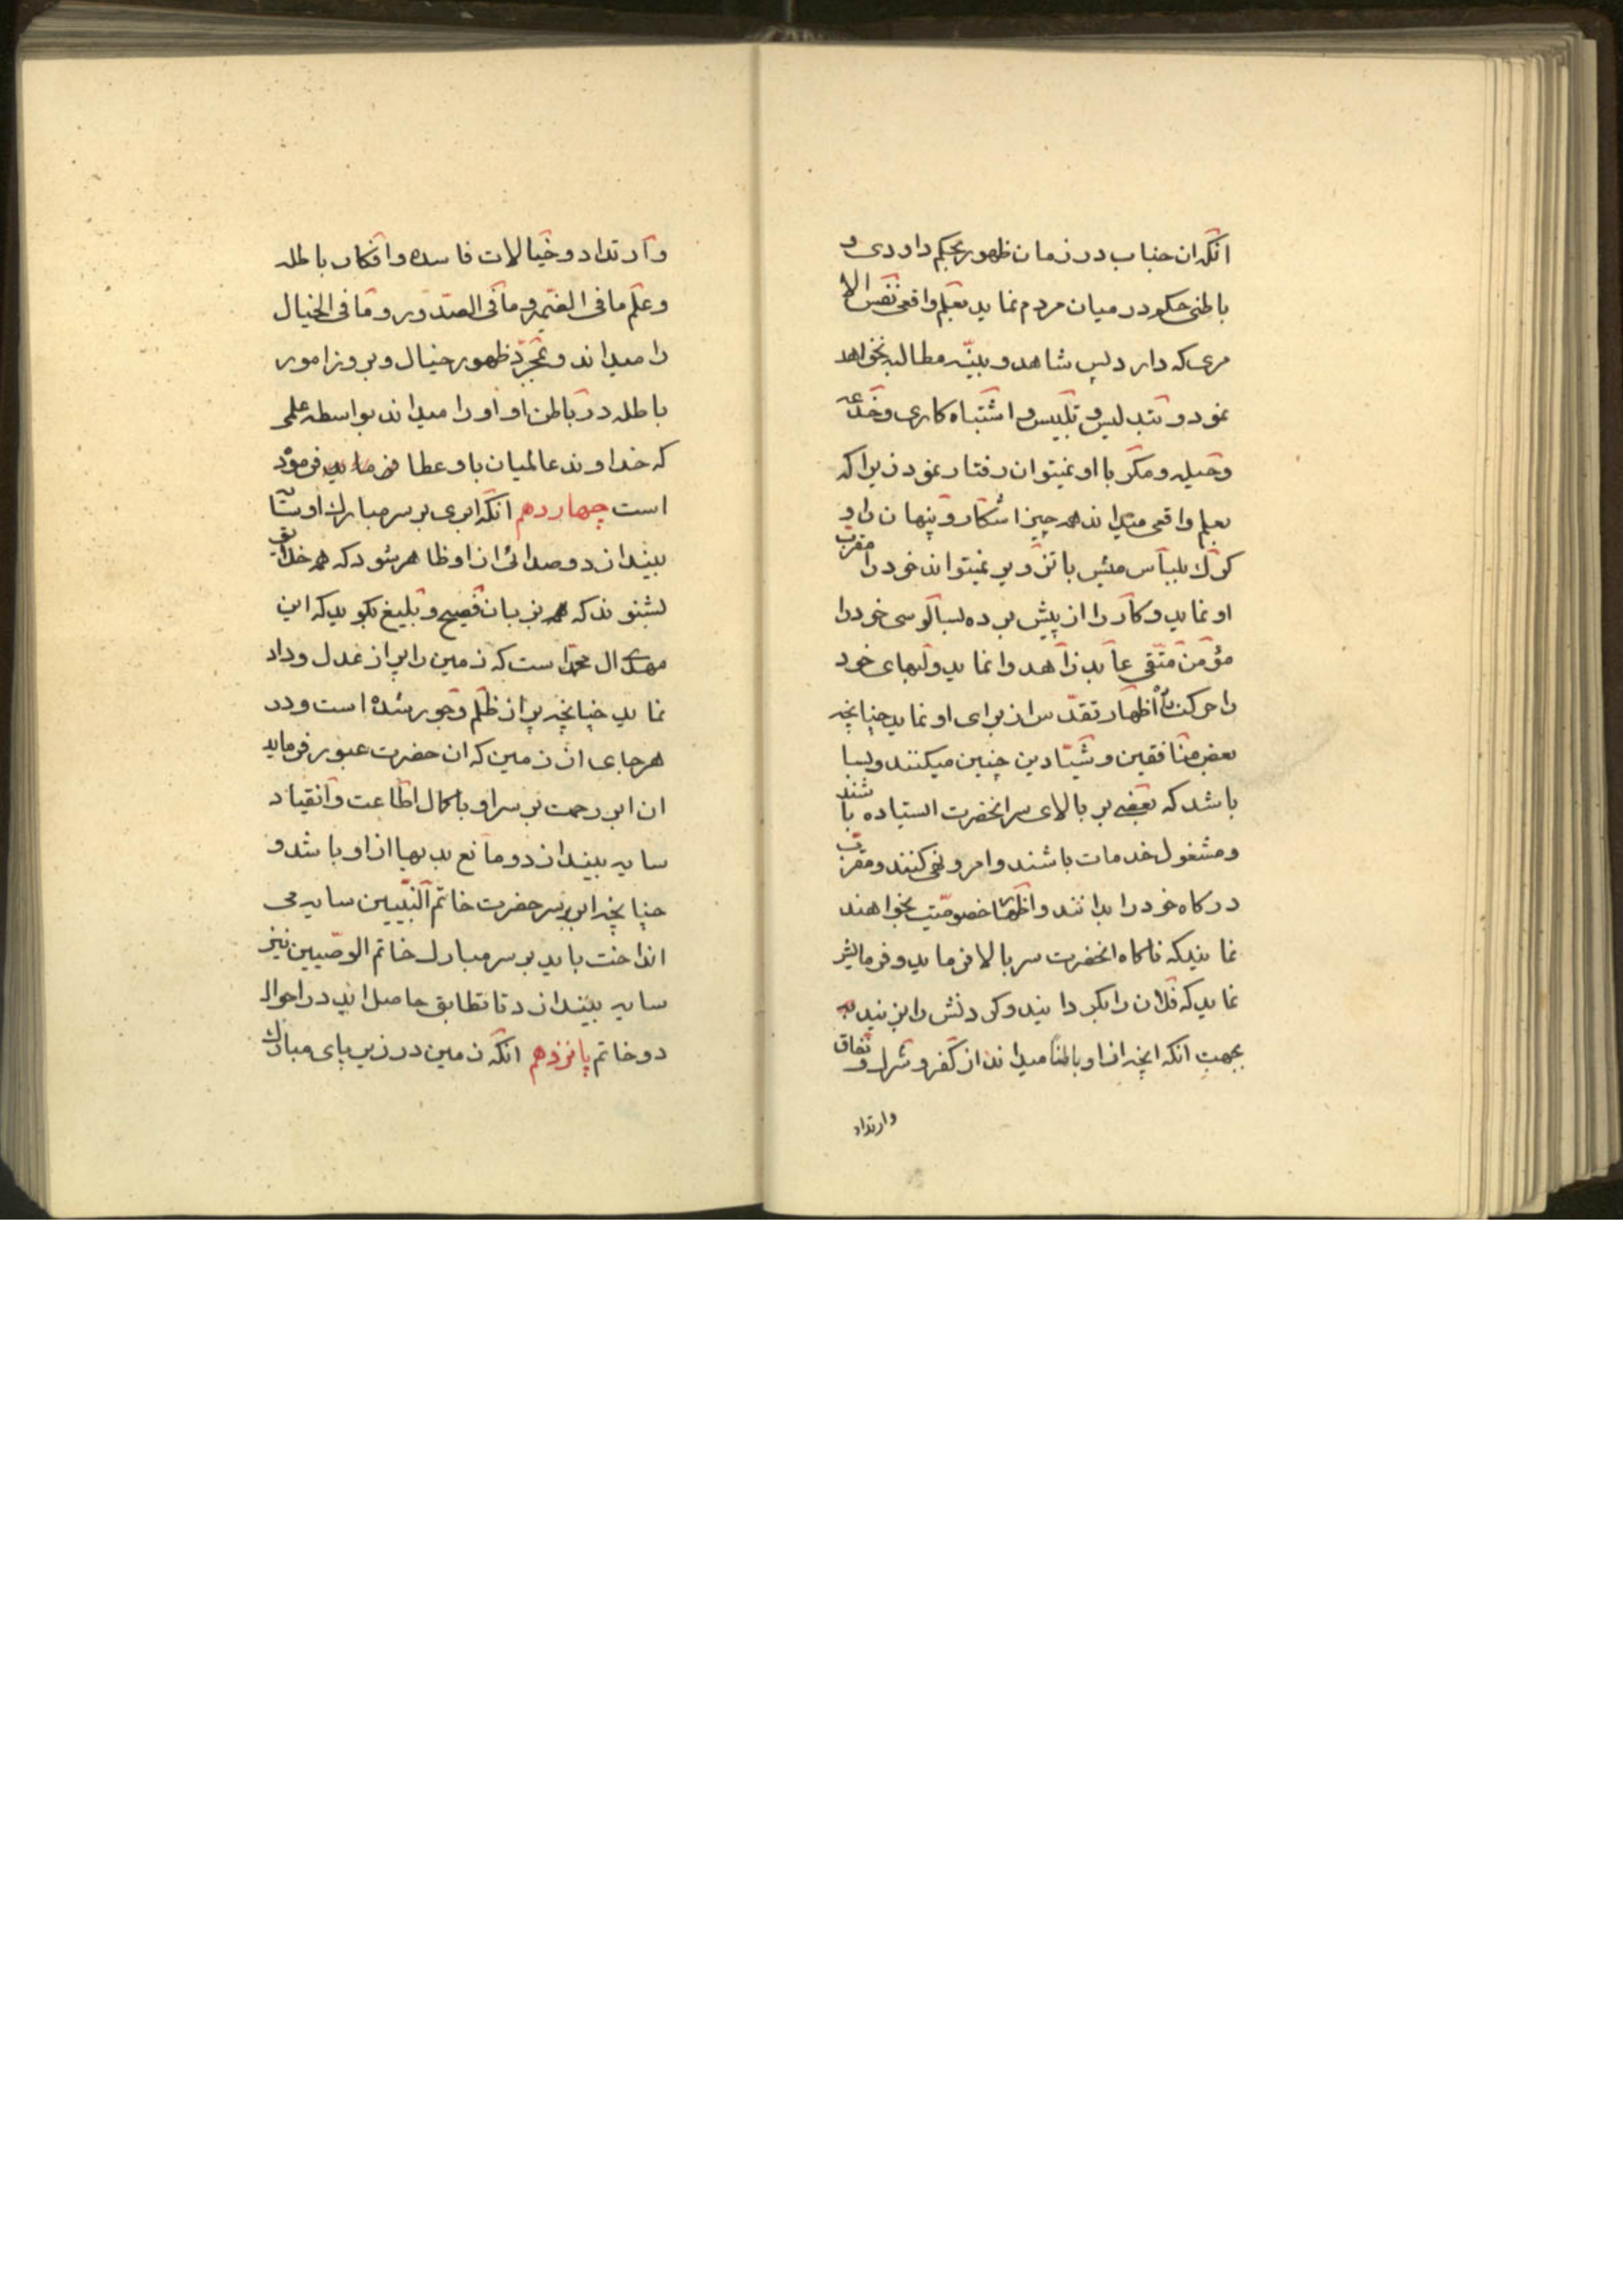 انکه ان جناب در زمان ظهور بحکم داودی و
باطنی حکم در میان مردم نماید بعلم واقعی نفس الا
مری که دارد پس شاهد و بینه مطالبه نخواهد
نمود و بتدلیس و تلبیس و اشتباه کاری و خدعه
و حیله و مکر با او نمیتوان رفتار نمود زیرا که
بعلم واقعی میداند همه چیز اشکار و پنهان را و
کرک بلباس میش با تزویر نمیتواند خود را مقرب
او نماید و کار را از پیش برده بسالوسی خود را
مؤمن متقی عابد زاهد وانماید و لبهای خود
را حرکت اظهار تقدس از برای او نماید چنانچه
بعض منافقین و شیادین چنین میکنند و بسا
باشد که بعضی بر بالای سر انحضرت ایستاده باشند
و مشغول خدمات باشند و امر و نهی کنند و مقرب
درکاه خود را بدانند و اظهار خصوصیت بخواهند
نمایند که ناکاه انحضرت سر بالا فرماید و فرمایش
نماید که فلان را بکردانید و کردنش را بزنید به
بجهت انکه انچه از او باطنا میداند از کفر و شرک و نفاق
وارتداد
و ارتداد و خیالات فاسده و افکار باطله
و علم ما فی الضمیر و ما فی الصدور و ما فی الخیال
را میداند و بمجرد ظهور خیال و بروز امور
باطله در باطن او او را میداند بواسطه علمی
که خداوند عالمیان باو عطا فرماید فرموده
است چهاردهم انکه ابری بر سر مبارک او سایه
بیندازد و صدائی از او ظاهر شود که همه خلایق
بشنوند که بزبان فصیح و بلیغ بکوید که این
مهدی ال محمد است که زمین را پر از عدل و داد
نماید چنانچه پر از ظلم و جور شده است و در
هر جای از زمین که ان حضرت عبور فرماید
ان ابر رحمت بر سر او با کمال اطاعت و انقیاد
سایه بیندازد و مانع بدیها از او باشد و
چنانچه ابر بر سر حضرت خاتم النبیین سایه می
انداخت باید بر سر مبارک خاتم الوصیین نیز
سایه بیندازد تا تطابق حاصل اید در احوال
دو خاتم پانزدهم انکه زمین در زیر پای مبارک